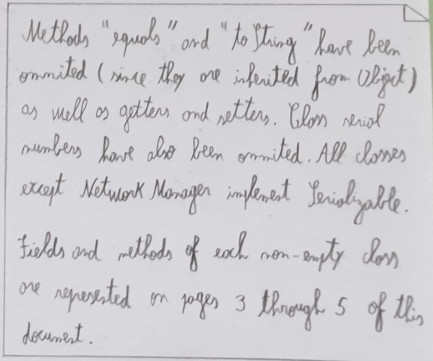 Methods "equals" and "to String" have been
ommited (since they are inherited from Object)
as well as getters and setters. Class serial
numbers have also been ommited. All classes
except Network Manager implement Serializable.
Fields and methods of each non-empty class
are represented on pages 3 through 5 of this
document.